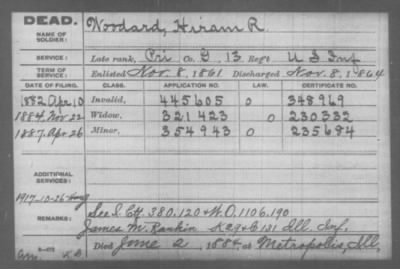 DEAD.
NAME OF SOLDIER: Woodard, Hiram R.
SERVICE: Late rank, Pri Co. G, 13 Regt U S Inf
TERM OF SERVICE: Enlisted Nov. 8, 1861 Discharged Nov. 8, 1864
DATE OF FILING. CLASS. APPLICATION NO. LAW. CERTIFICATE NO.
1882 Apr 10 Invalid, 445605 0 348969
1884 Nov 22 Widow, 321423 0 230332
1887 Apr 26 Minor, 354943 0 235684
ADDITIONAL SERVICES:
1917-13-26
REMARKS: See I. Ctf 380.120 & W.O. 1106.190
James M. Rankin K & 131 Ill. Inf.
Died June 2, 1884 at Metropolis, Ill.